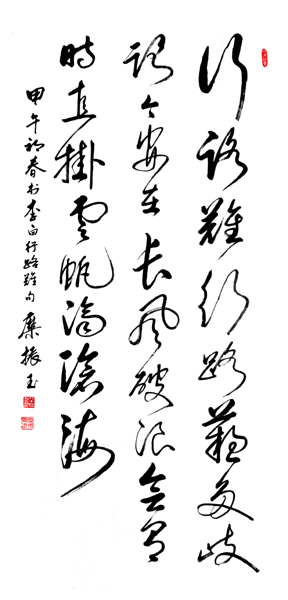 行路難行路難多岐
路今安在長風破浪會有
時直掛雲帆濟滄海
甲午初春书李白行路難句 糜振玉